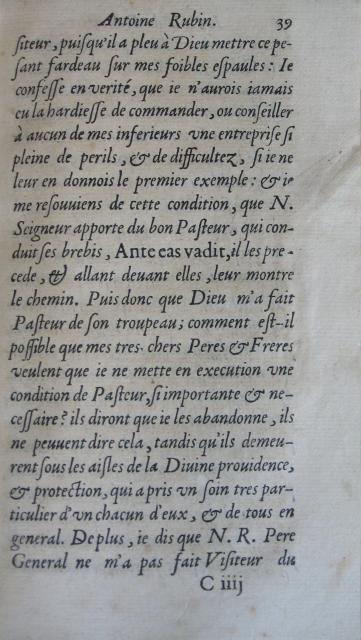 Antoine Rubin. 39
ſiteur, puiſqu'il a pleu à Dieu mettre ce pe-
ſant fardeau ſur mes foibles eſpaules : Ie
confeſſe en verité, que ie n'aurois iamais
eu la hardieſſe de commander, ou conſeiller
à aucun de mes inferieurs vne entrepriſe ſi
pleine de perils, & de difficultez, ſi ie ne
leur en donnois le premier exemple : & ie
me reſouuiens de cette condition, que N.
Seigneur apporte du bon Paſteur, qui con-
duit ſes brebis, Ante eas vadit, il les pre-
cede, & allant deuant elles, leur montre
le chemin. Puis donc que Dieu m'a fait
Paſteur de ſon troupeau; comment eſt-il
poſſible que mes tres-chers Peres & Freres
veulent que ie ne mette en execution vne
condition de Paſteur, ſi importante & ne-
ceſſaire? ils diront que ie les abandonne, ils
ne peuuent dire cela, tandis qu'ils demeu-
rent ſous les aiſles de la Diuine prouidence,
& protection, qui a pris vn ſoin tres par-
ticulier d'vn chacun d'eux, & de tous en
general. De plus, ie dis que N. R. Pere
General ne m'a pas fait Viſiteur du
C iiij